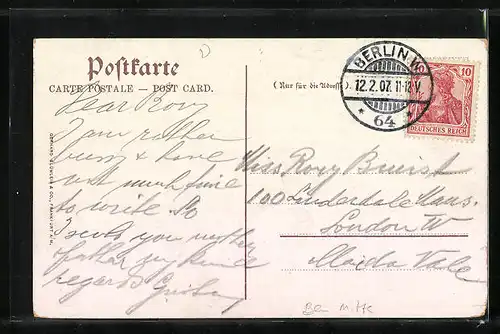 Postkarte
CARTE POSTALE — POST CARD.
(Nur für die Adresse).
BERLIN.W.
12.2.07. 11-12V.
* 64 *
10
DEUTSCHES REICH
Dear Rory
I am rather
busy & have
not much time
to write. So
I send you
father my kind
regards
Miss Rory
100 Lauderdale Mans.
London W
Maida Vale